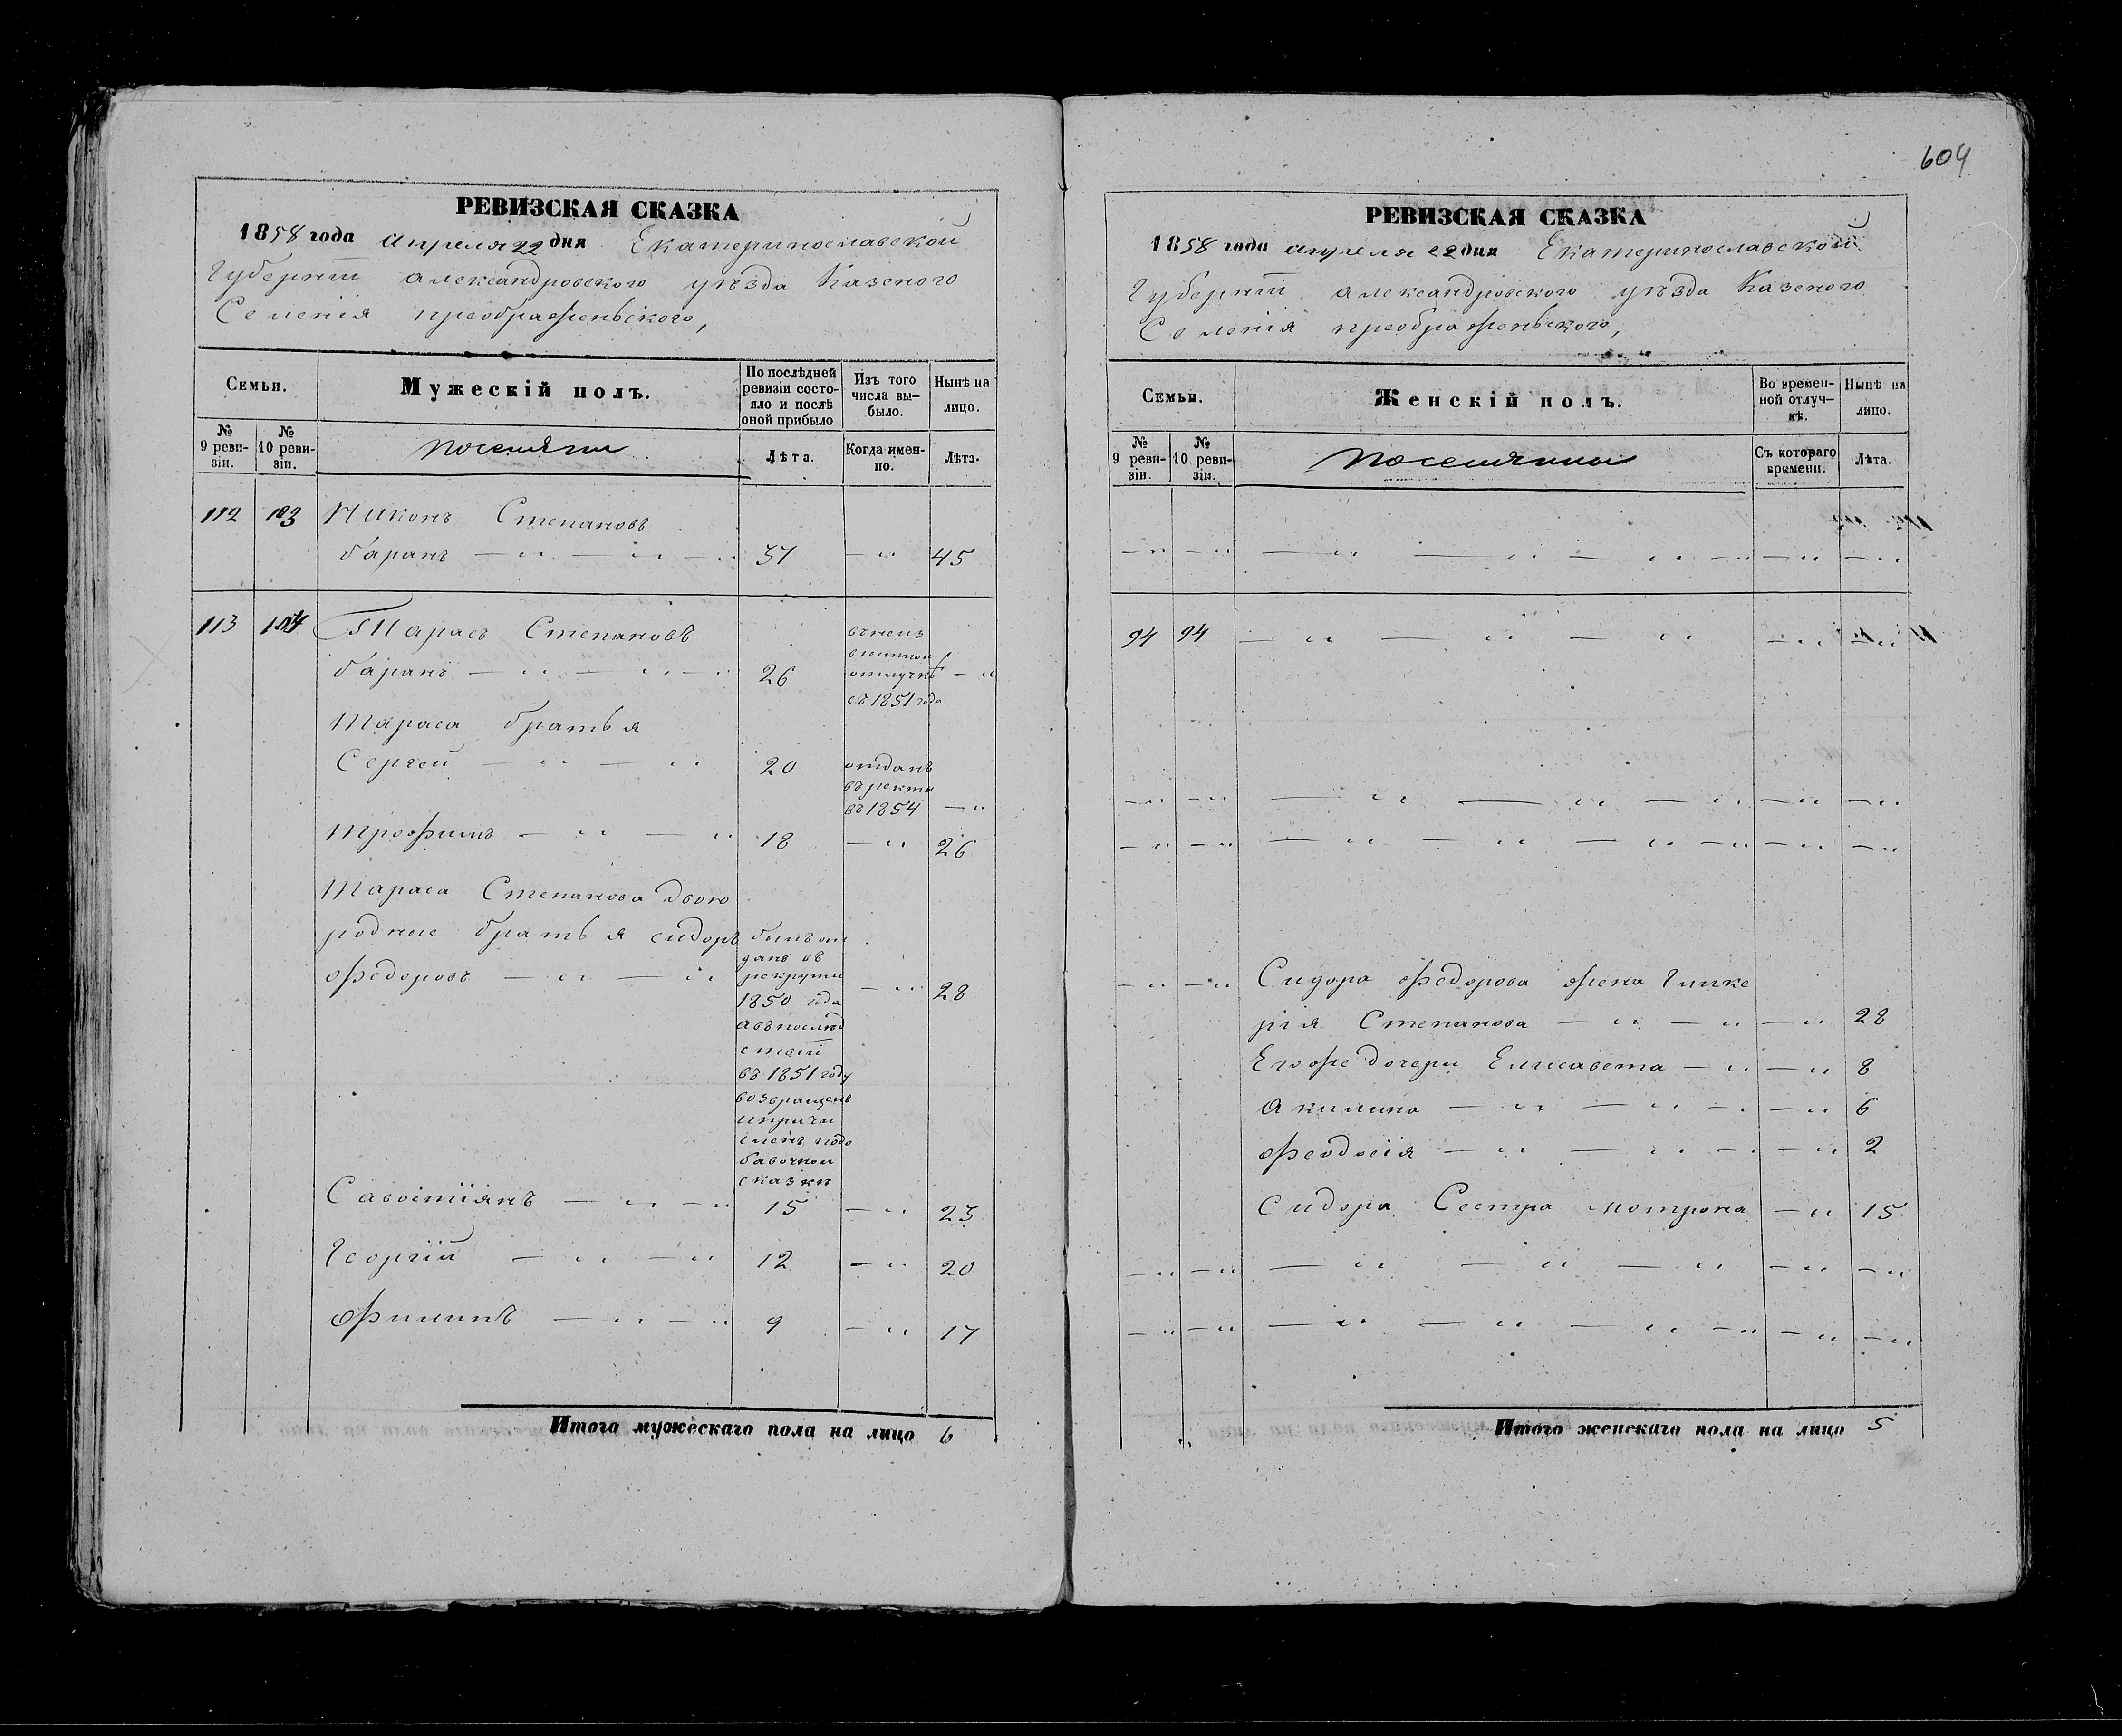 604
РЕВИЗСКАЯ СКАЗКА
1858 года Апреля 22 дня Екатеринославской
Губернiи Александровского уѣзда Казеного
Селенiя преображеньского,
Семьи.
Мужескій полъ.
По послѣдней ревизіи состо-
яло и послѣ
оной прибыло
Изъ того
числа вы-
было.
Нынѣ на
лицо.
№
9 реви-
зіи.
№
10 реви-
зіи.
поселяни
Лѣта.
Когда имен-
но.
Лѣта.
112 103 Никонъ Степановъ
баранъ — " — " — " 37 — " 45
113 104 Тарасъ Степановъ
баранъ — " — " — " 26 — "
отлучкѣ
съ 1851 года
Тараса братья
Сергей — " — " 20 отданъ
въ 1854 — "
трофимъ — " — " 18 — " 26
Тараса Степанова двою
родные братья сидоръ былъ от
данъ въ
федоровъ — " — " рекруты — " 28
1850 года
въ 1851 году
возвращенъ
сказкѣ
Савостіянъ — " — " 15 — " 23
Георгій — " — " 12 — " 20
филипъ — " — " 9 — " 17
Итого мужескаго пола на лицо 6
РЕВИЗСКАЯ СКАЗКА
1858 года апреля 22 дня Екатеринославской
Губернiи александровского уѣзда Казеного
Селенiя преображеньского,
Семьи.
Женскій полъ.
Во времен-
ной отлуч-
кѣ.
Нынѣ на
лицо.
№
9 реви-
зіи.
№
10 реви-
зіи.
поселянки
Съ котораго
времени.
Лѣта.
— " — " — " — " — " — " — " — "
94 94 — " — " — " — " — "
— " — " — " — " — " — " — "
— " — " — " — " — " — " — " — "
— " — " Сидора федорова жена Глике
рія Степанова — " — " — " 28
Егоже дочери Елисавета — " — " 8
акилина — " — " — " — " 6
феодосія — " — " — " — " 2
Сидора Сестра мотрона — " 15
— " — " — " — " — " — " — "
— " — " — " — " — " — " — " — "
Итого женскаго пола на лицо 5